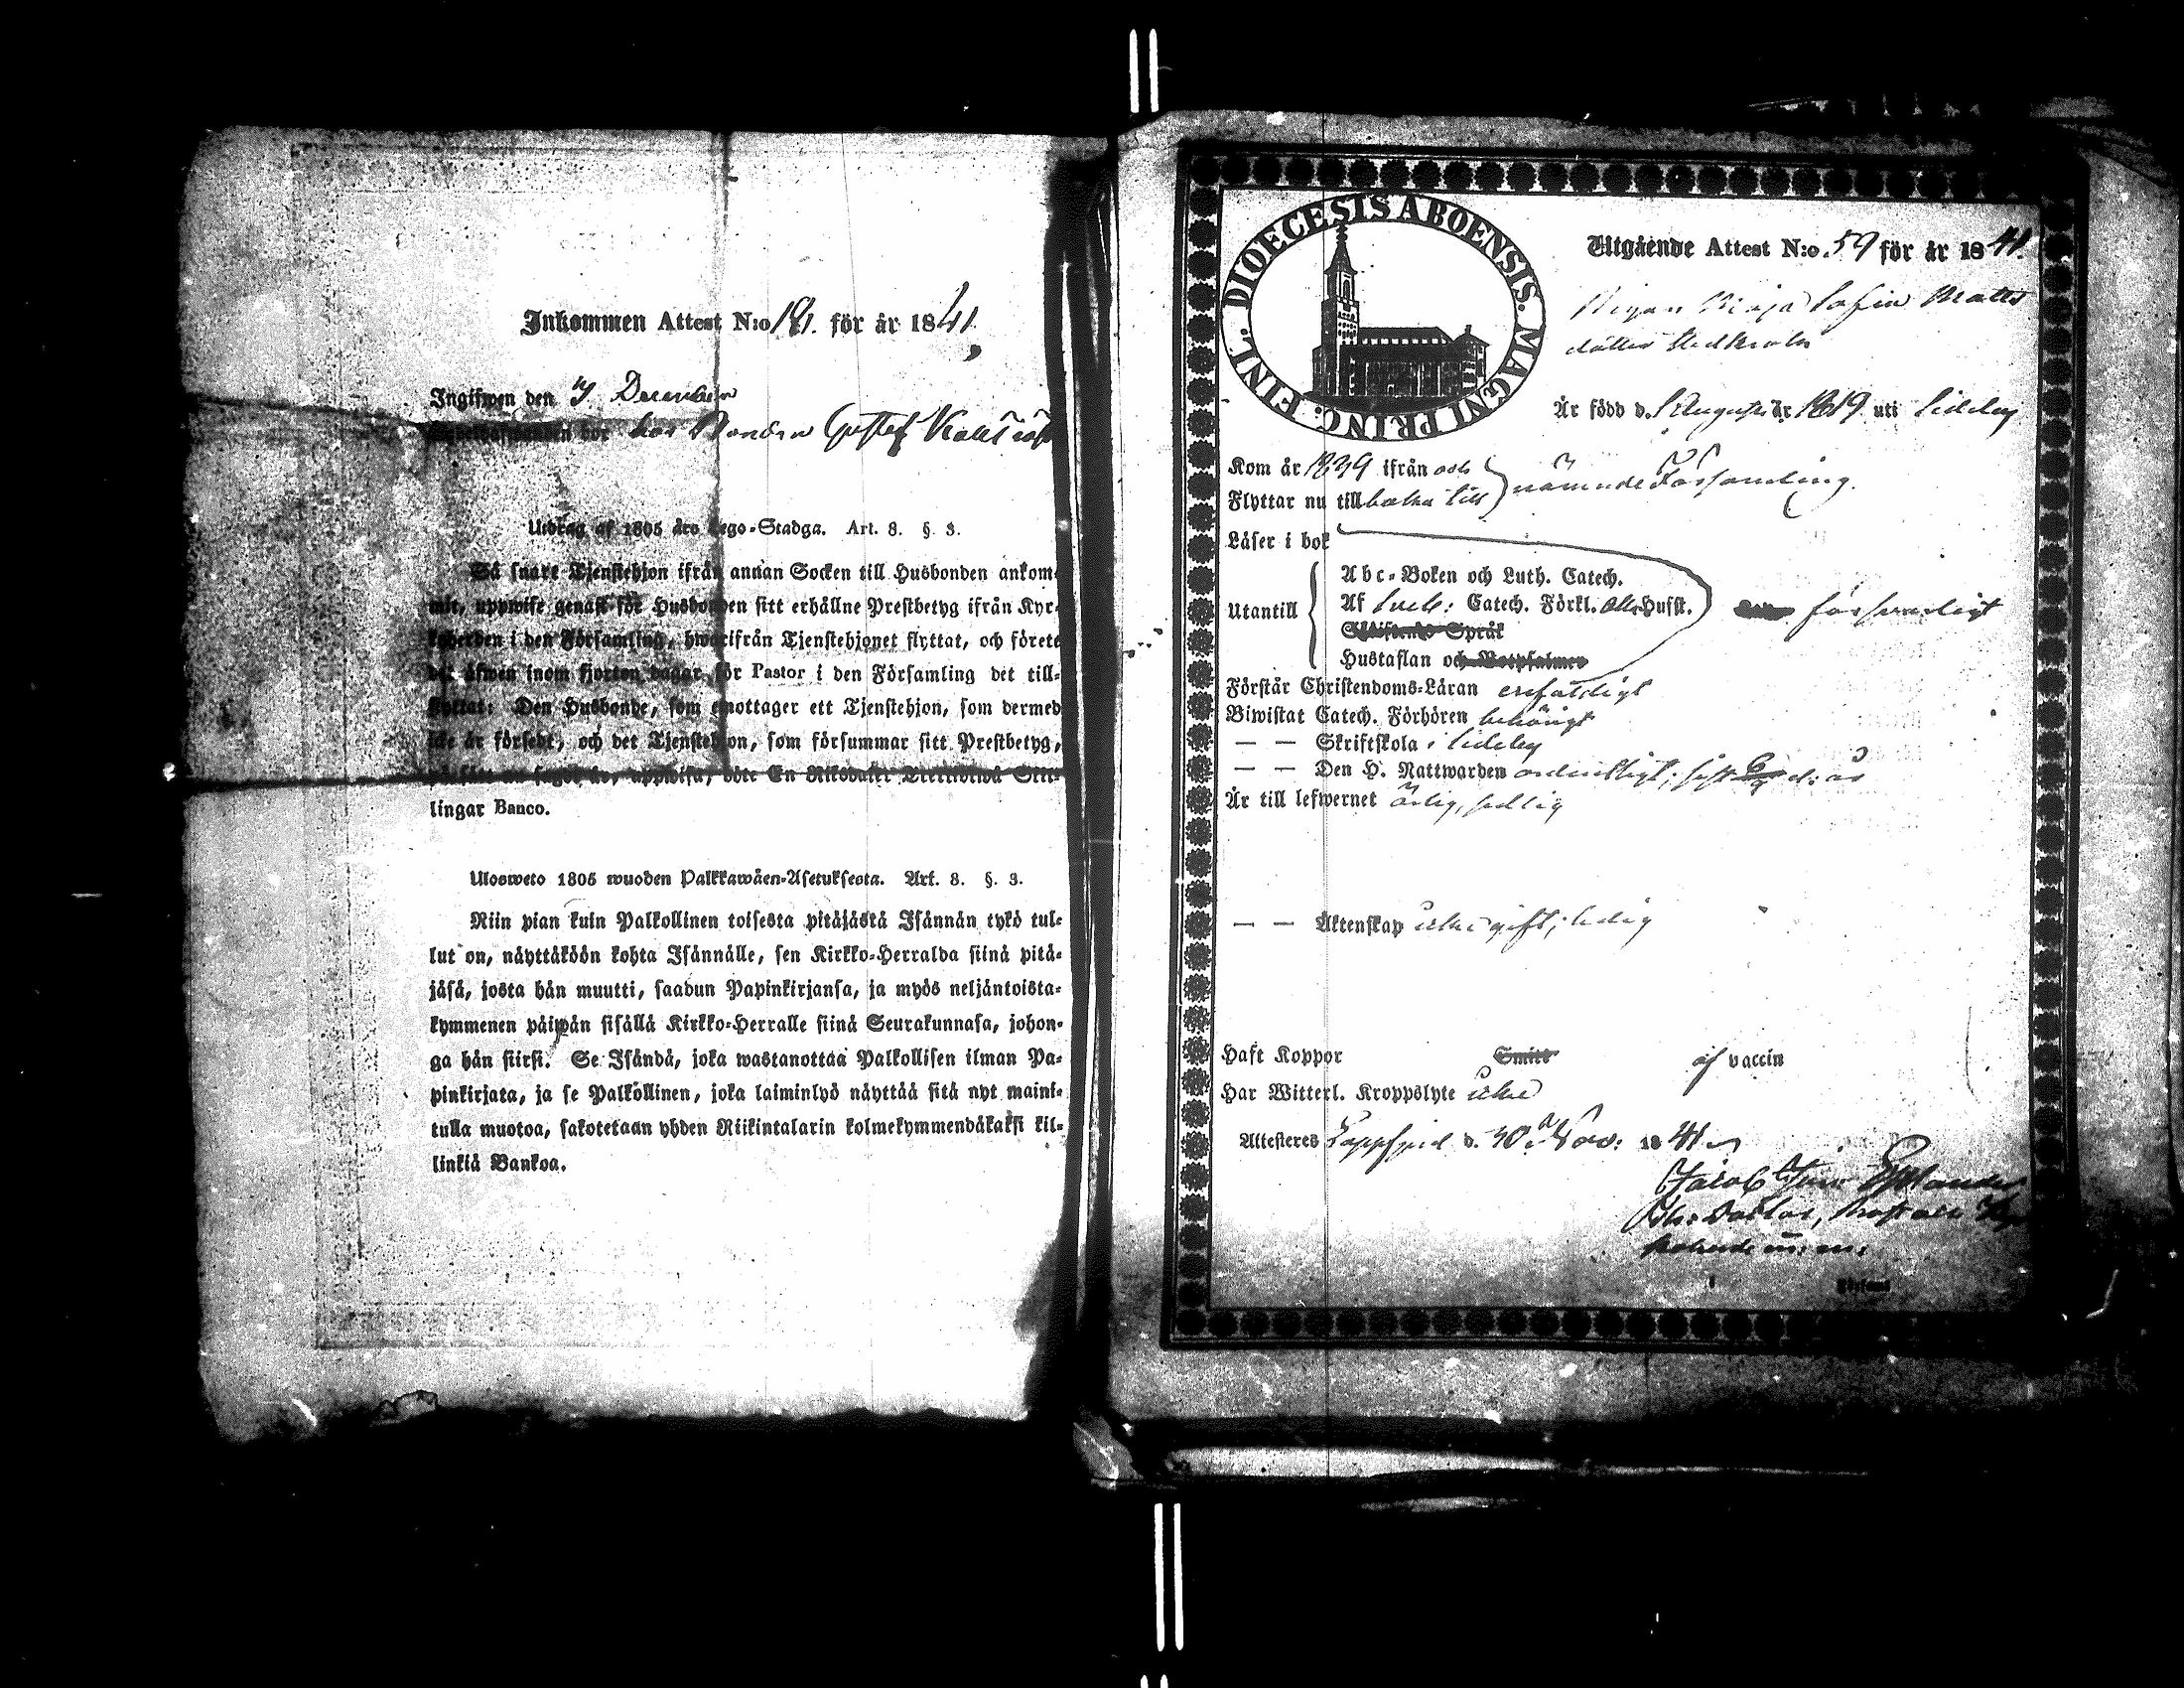 Inkommen Attest N:o 181. för år 1841,
Ingifwen den 7 December
hos Bonden Gustaf
Utdrag af 1805 års Lego-Stadga. Art. 8. §. 3.
Så snart Tjenstehjon ifrån annan Socken till Husbonden ankom-
mit, uppwise genast för Husbonden sitt erhållne Prestbetyg ifrån Kyr-
koherden i den Församling, hwarifrån Tjenstehjonet flyttat, och förete
det äfwen inom fjorton dagar för Pastor i den Församling det till-
flyttat: Den Husbonde, som emottager ett Tjenstehjon, som dermed
icke är försedt, och det Tjenstehjon, som försummar sitt Prestbetyg,
uppwisa, böte En Riksdaler Trettiotwå Skil-
lingar Banco.
Ulosweto 1805 wuoden Palkkawäen-Asetuksesta. Art. 8. §. 3.
Niin pian kuin Palkollinen toisesta pitäjästä Isännän tykö tul-
lut on, näyttäköön kohta Isännälle, sen Kirkko-Herralda siinä pitä-
jäsä, josta hän muutti, saadun Papinkirjansa, ja myös neljäntoista-
kymmenen päiwän sisällä Kirkko-Herralle siinä Seurakunnasa, johon-
ga hän siirsi. Se Isändä, joka wastanottaa Palkollisen ilman Pa-
pinkirjata, ja se Palkollinen, joka laiminlyö näyttää sitä nyt maini-
tulla muotoa, sakotetaan yhden Riikintalarin kolmekymmendäkaksi kil-
linkiä Bankoa.
DIOECESIS ABOENSIS. MAGNI PRINC. FINL.
Utgående Attest N:o 59 för år 1841.
Pigan Maja Sofia Matts
dotter
Är född d. 1 Augusti år 1819 uti Sideby
Kom år 1839 ifrån och
Flyttar nu till baka till } nämnde Församling.
Läser i bok
Utantill { Abc-Boken och Luth. Catech.
Af Sveb: Catech. Förkl. och Husst. försvarligt
Skriftens Språk
Hustaflan och Botpsalmer
Förstår Christendoms-Läran enfaldigt
Biwistat Catech. Förhören behörigt
— — Skriftskola i Sideby
— — Den H. Nattwarden ordentligt; sist d: å
Är till lefwernet ärlig, sedlig
— — Äktenskap icke gift; ledig
Haft Koppor Smitt af vaccin
Har Witterl. Kroppslyte icke
Attesteres Lappfjerd d. 30 Nov: 1841
Jacob
Phi: Doctor, Prost och Ky
koherde m: m: